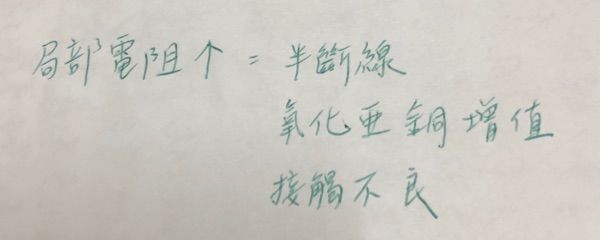 局部電阻↑ = 半斷線
氧化亜銅增值
接觸不良